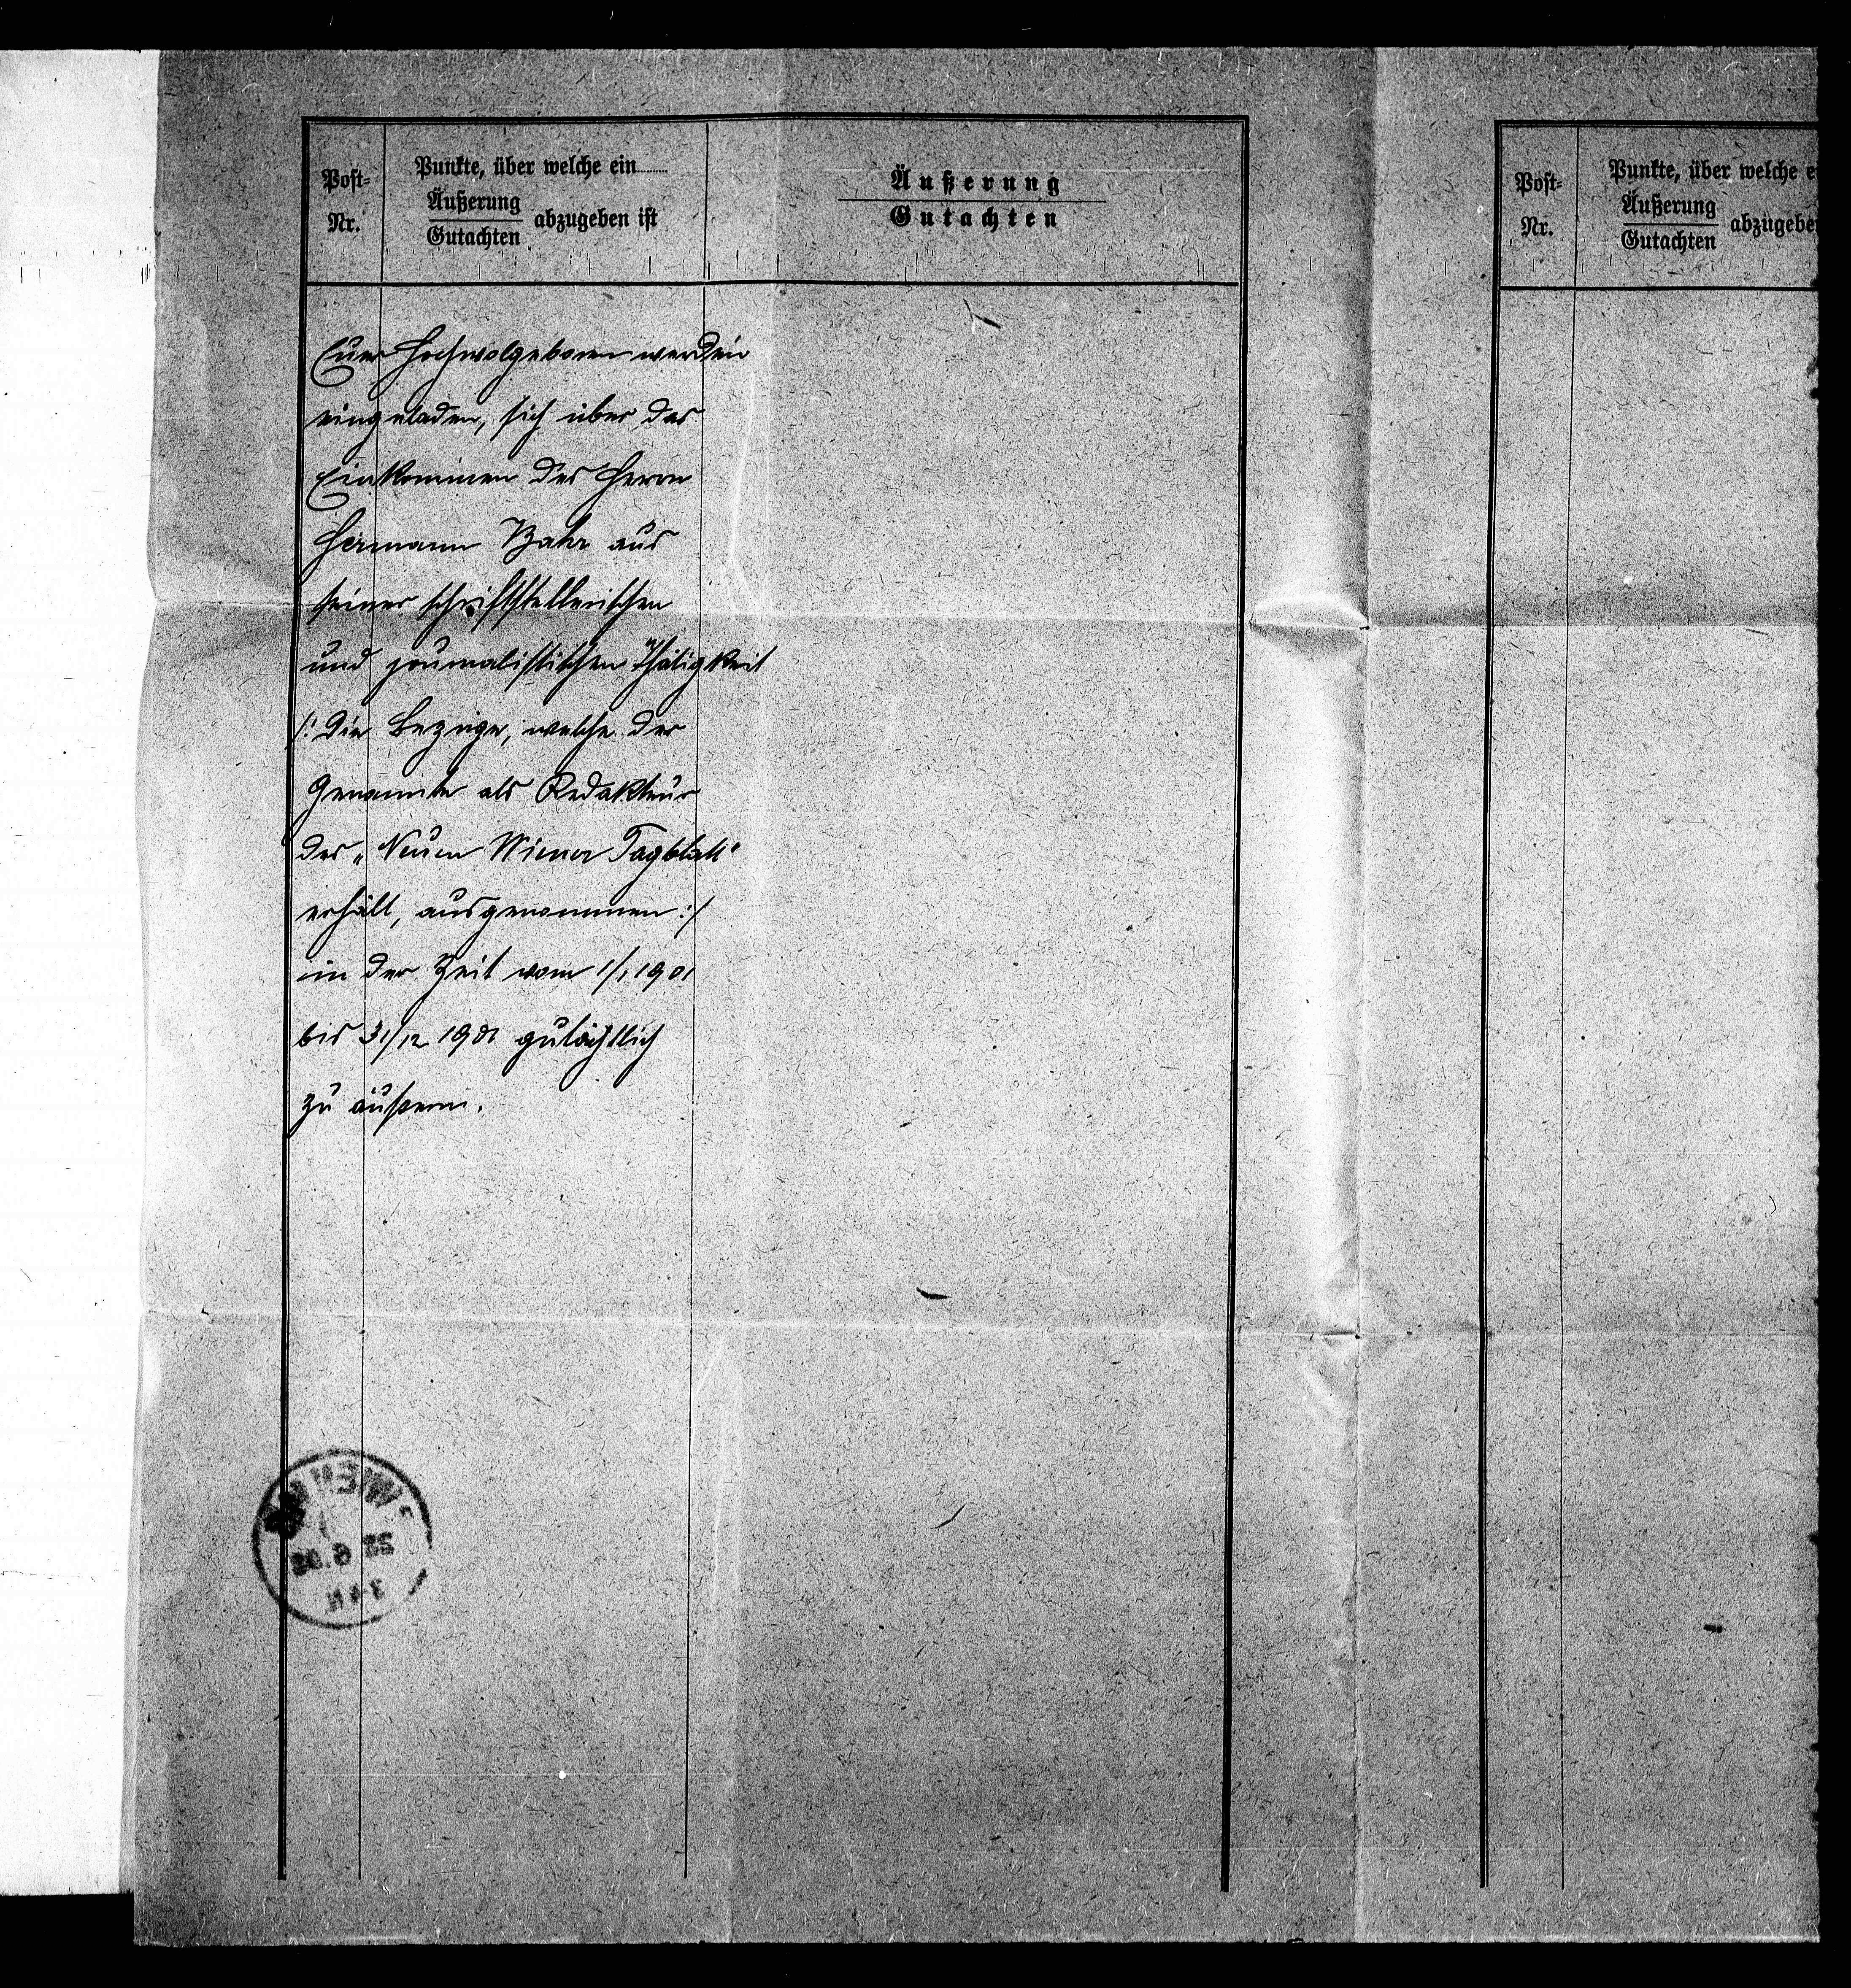 Post-
Nr.
Punkte, über welche ein
Äußerung
Gutachten
abzugeben ist
Äußerung
Gutachten
Euer Hochwolgeboren werden
eingeladen, sich über das
Einkommen des Herrn
Hermann Bahr aus
seiner schriftstellerischen
und journalistischen Thätigkeit
/: die Bezüge, welche der
Genannte als Redakteur
des „Neuen Wiener Tagblatt"
erhält, ausgenommen :/
in der Zeit vom 1/1 1901
bis 31/12 1901 gutächtlich
zu äußern.
WIEN
22 6 02
Post-
Nr.
Punkte, über welche
Äußerung
Gutachten
abzugebe